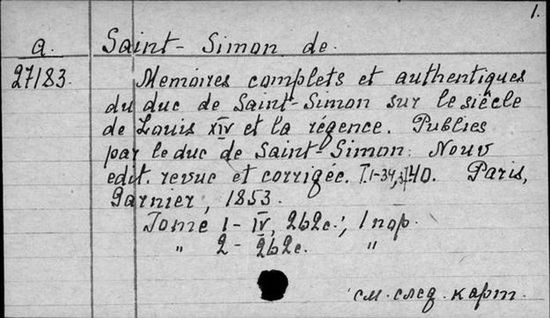 1.
a. Saint-Simon de.
27183. Memoires complets et authentiques
du duc de Saint-Simon sur le siècle
de Louis XIV et la régence. Publies
par le duc de Saint-Simon. Nouv
edit. revue et corrigée. T. 1-34, 40. Paris,
Garnier, 1853.
Tome 1 - IV, 262c.; 1 пор.
" 2 - 262c. "
см. след. карт.